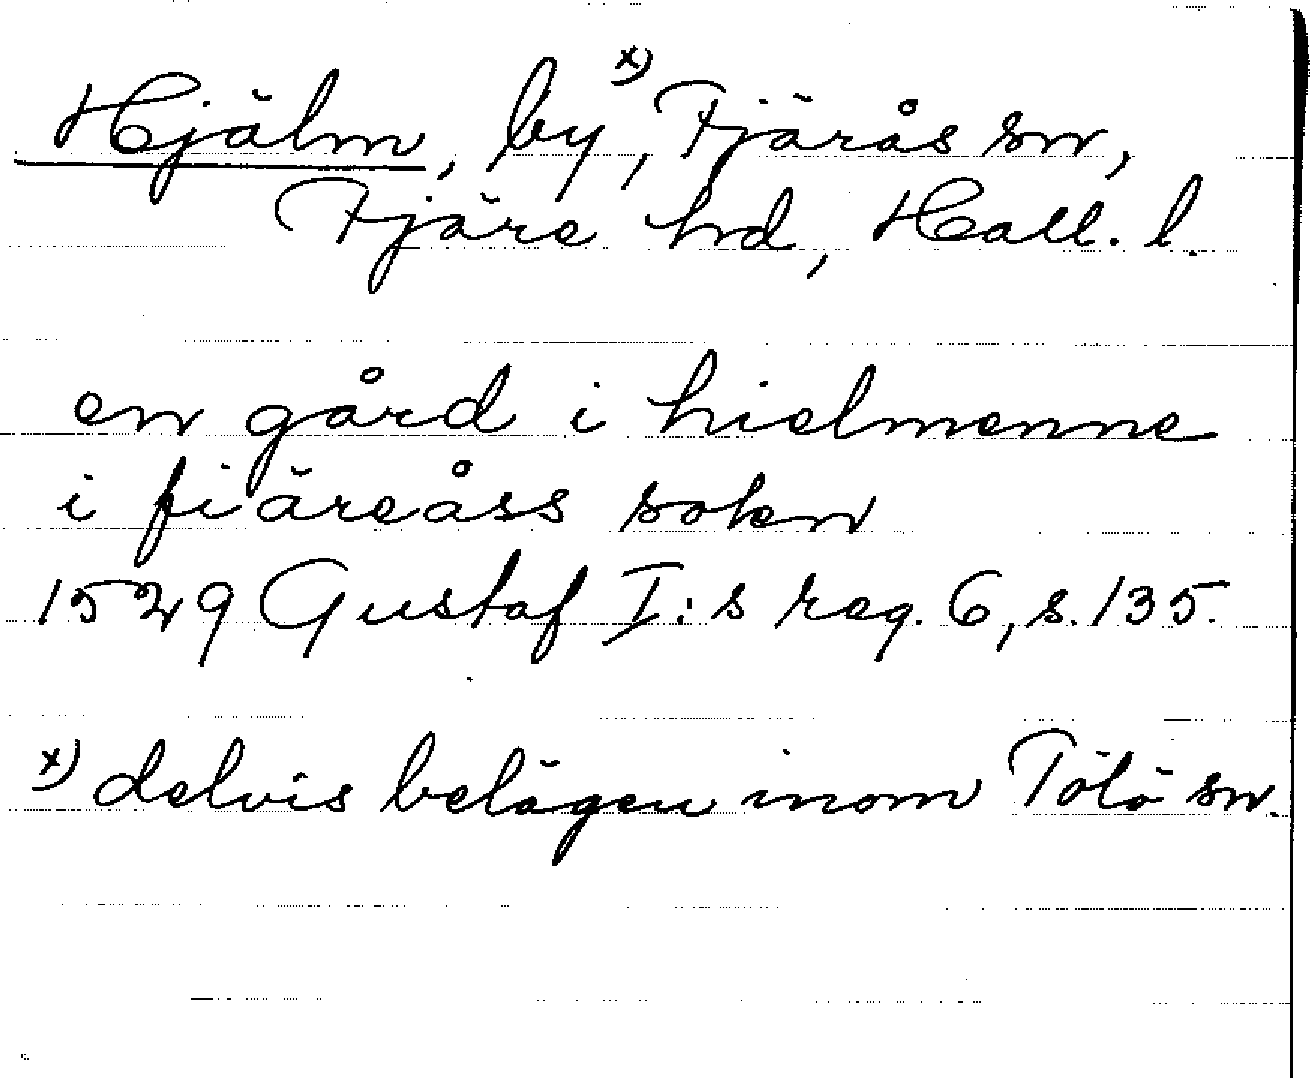 Hjälm, by x), Fjärås sn,
Fjäre hd, Hall. l.
en gård i hielmenne
i fiäreåss soken
1529 Gustaf I:s reg. 6, s. 135.
x) delvis belägen inom Tölö sn.